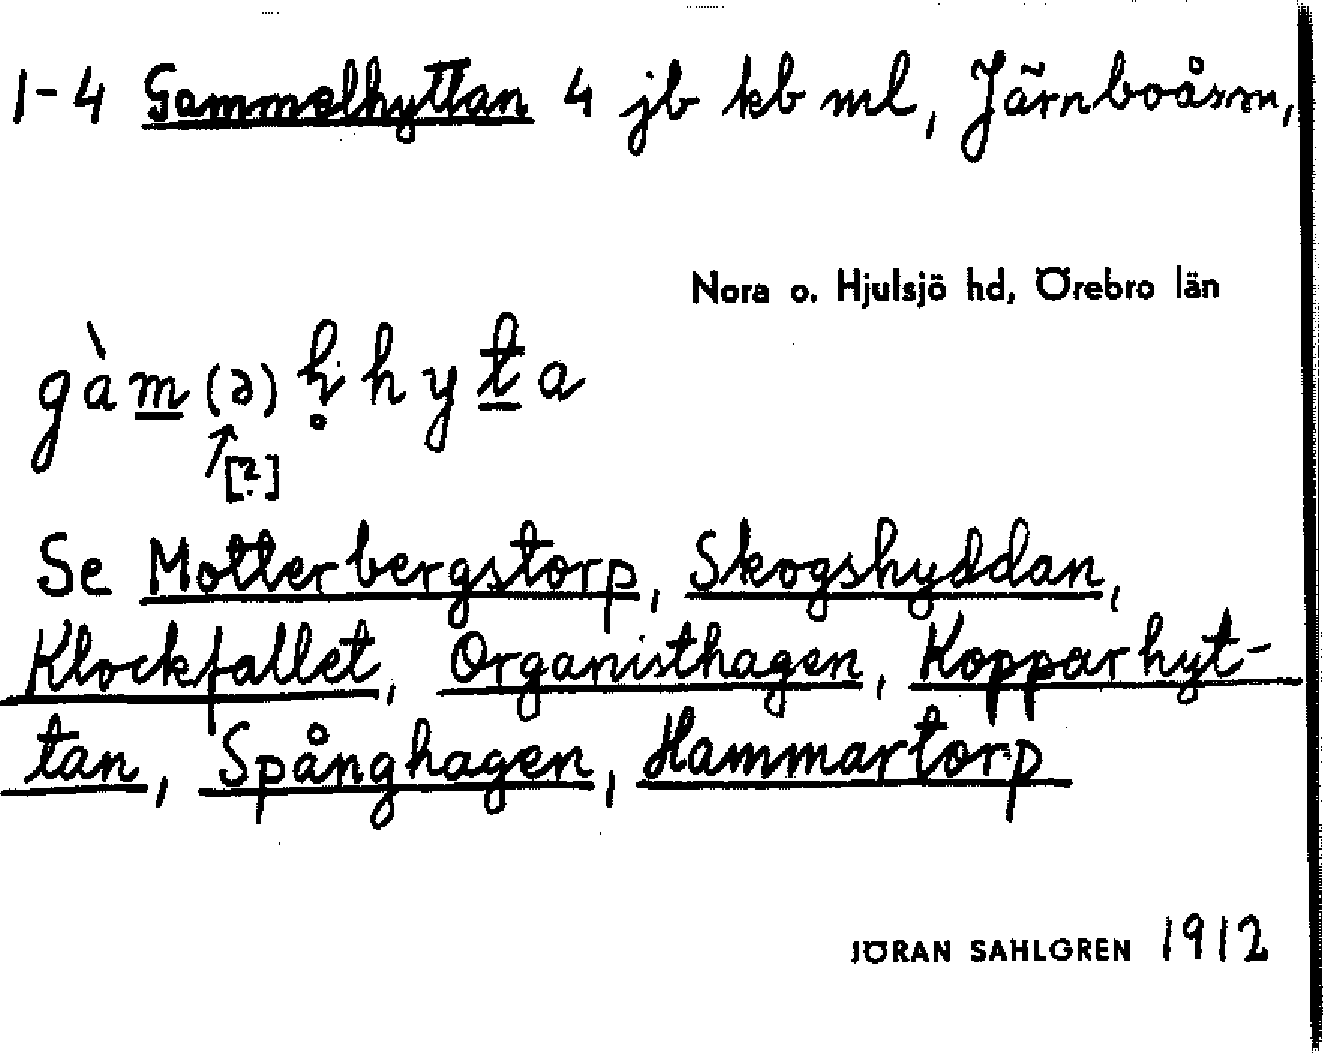 1-4 Gammelhyttan 4 jb kb ml, Järnboåsm,
Nora o. Hjulsjö hd, Örebro län
gàm(ə)l̥hyta
[?]
Se Motterbergstorp, Skogshyddan,
Klockfallet, Organisthagen, Kopparhyt-
tan, Spånghagen, Hammartorp
JÖRAN SAHLGREN 1912